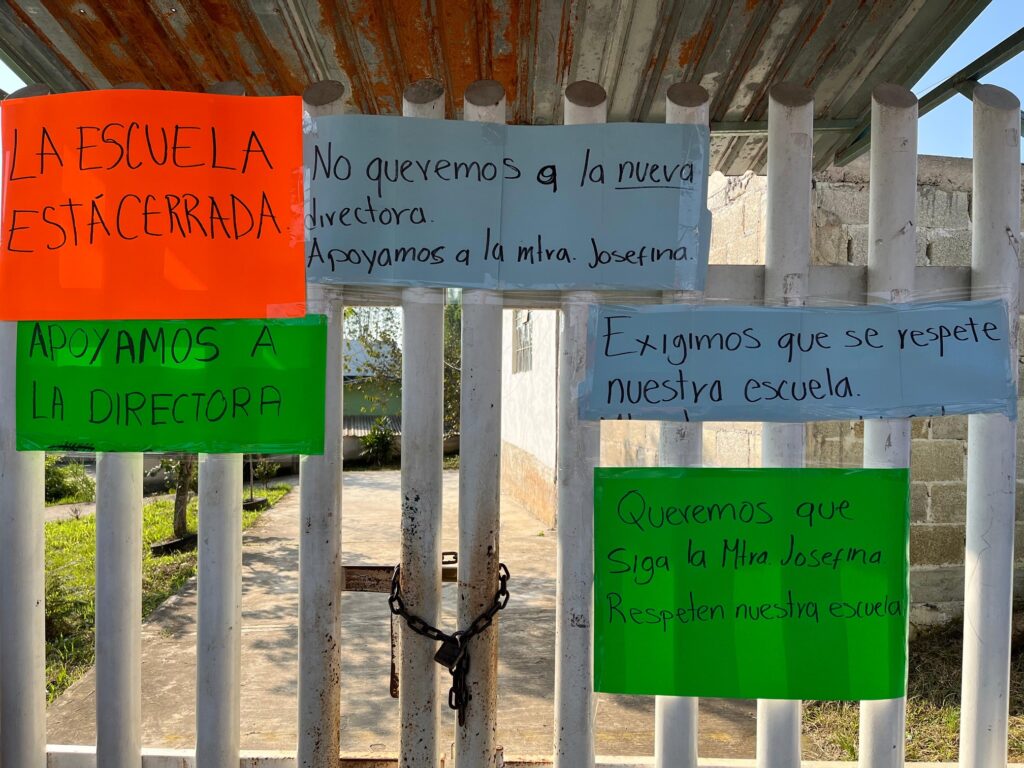 LA ESCUELA
ESTÁ CERRADA
No queremos a la nueva
directora.
Apoyamos a la mtra. Josefina.
APOYAMOS A
LA DIRECTORA
Exigimos que se respete
nuestra escuela.
Queremos que
siga la Mtra. Josefina
Respeten nuestra escuela